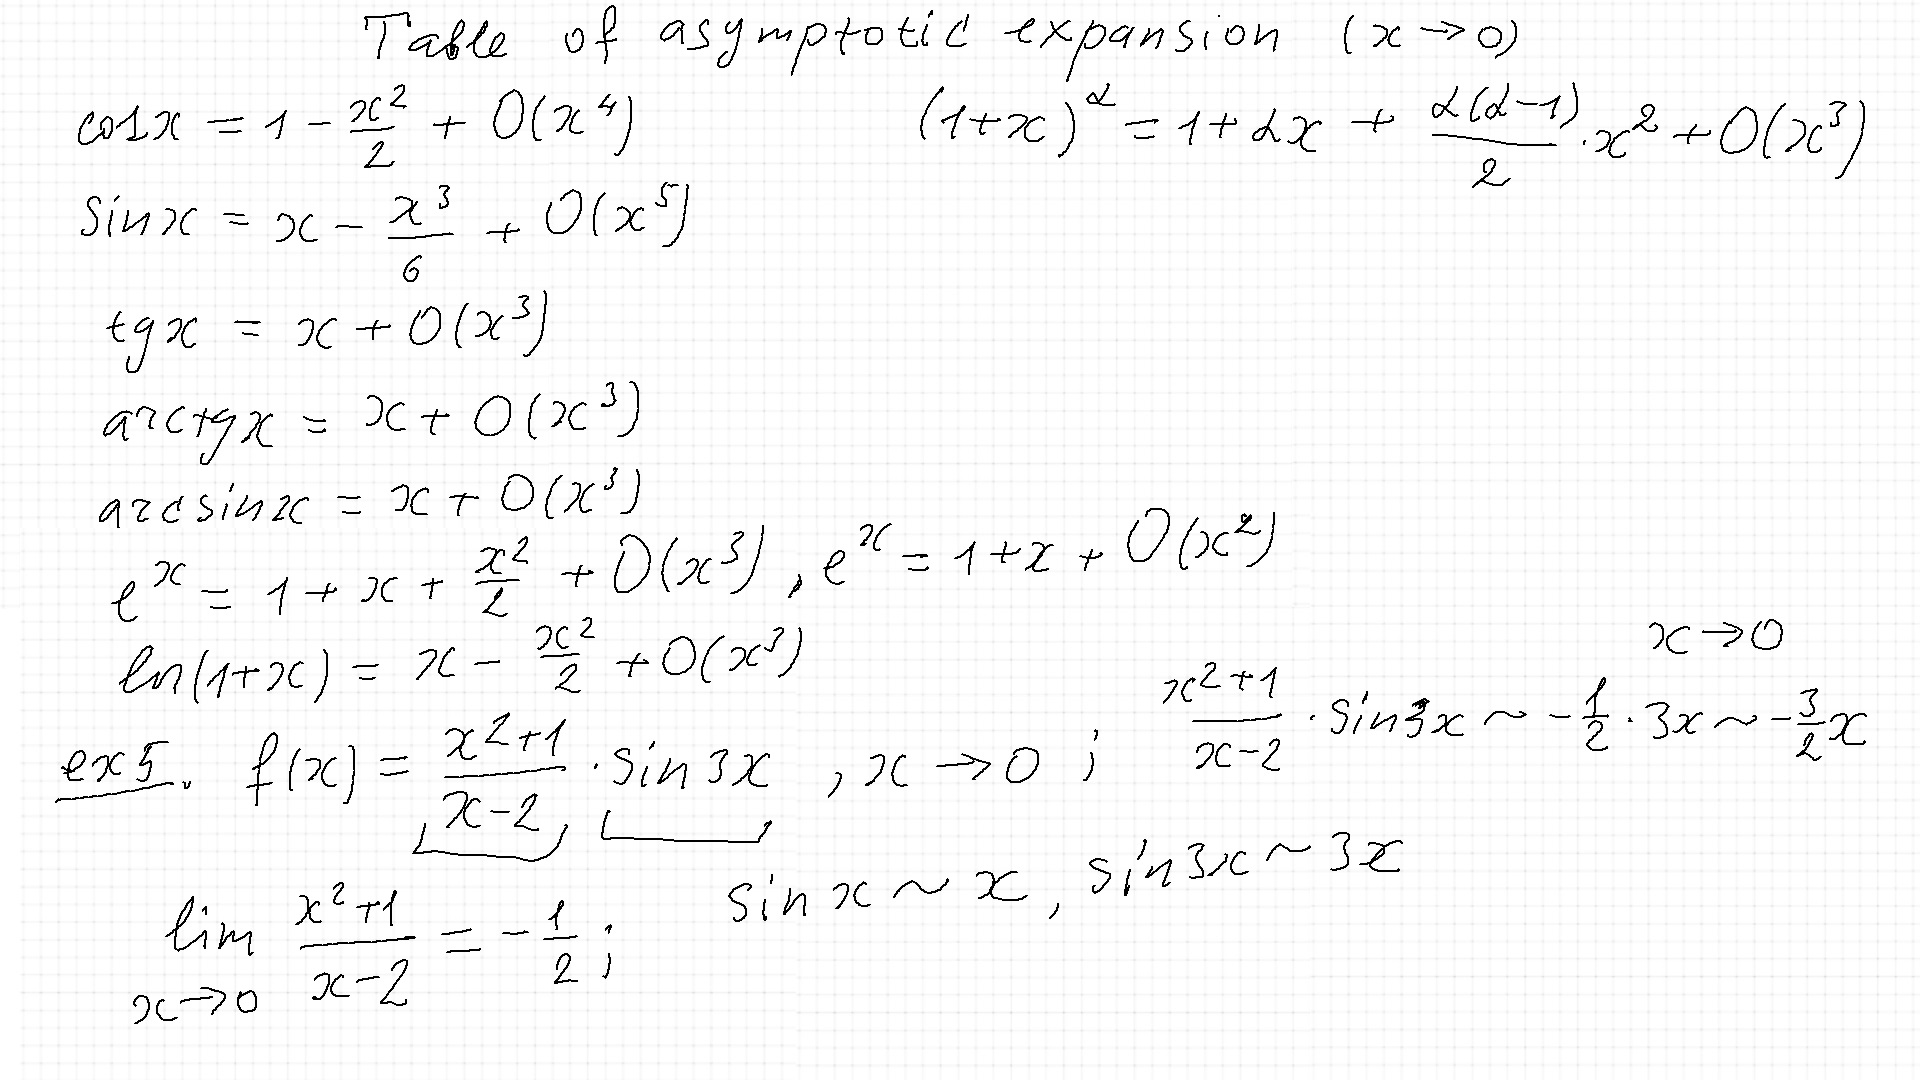 Table of asymptotic expansion (x → 0)
cos x = 1 - x²/2 + O(x⁴)
(1+x)^α = 1 + αx + α(α-1)/2 · x² + O(x³)
sin x = x - x³/6 + O(x⁵)
tg x = x + O(x³)
arctg x = x + O(x³)
arcsin x = x + O(x³)
e^x = 1 + x + x²/2 + O(x³), e^x = 1 + x + O(x²)
ln(1+x) = x - x²/2 + O(x³)
x → 0
ex 5. f(x) = (x²+1)/(x-2) · sin 3x, x → 0 ; (x²+1)/(x-2) · sin 3x ~ -1/2 · 3x ~ -3/2 x
lim x→0 (x²+1)/(x-2) = -1/2 ; sin x ~ x, sin 3x ~ 3x